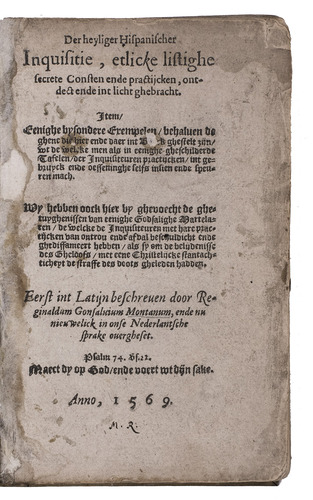 Der heyliger Hispanischer
Inquisitie, etlicke listighe
secrete Consten ende practijcken, ont-
dect ende int licht ghebracht.
Item/
Eenighe bysondere Exempelen/ behaluen de
ghene die hier ende daer int ghestelt zijn/
wt de welcke men als in eenighe gheschilderde
Tafelen/ der Inquisiteuren practijcken/ int ge-
bruyck ende oeffeninghe selfs insien ende speu-
ren mach.
Wy hebben oock hier by ghevoecht de ghe-
tuyghenissen van eenighe Godsalighe Martela-
ren/ de welcke de Inquisiteuren met hare practi-
jcken van ontrou ende afval beschuldicht ende
ghediffameert hebben/ als sy om de belijdenisse
des Gheloofs/ met eene Christelicke stantach-
ticheyt de straffe des doots gheleden hadden.
Eerst int Latijn beschreuen door Re-
ginaldum Gonsaluium Montanum, ende nu
nieuwelick in onse Nederlantsche
sprake ouergheset.
Psalm 74. vs. 22.
Maect dy op God/ ende voert wt dijn sake.
Anno, 1569.
M. R.